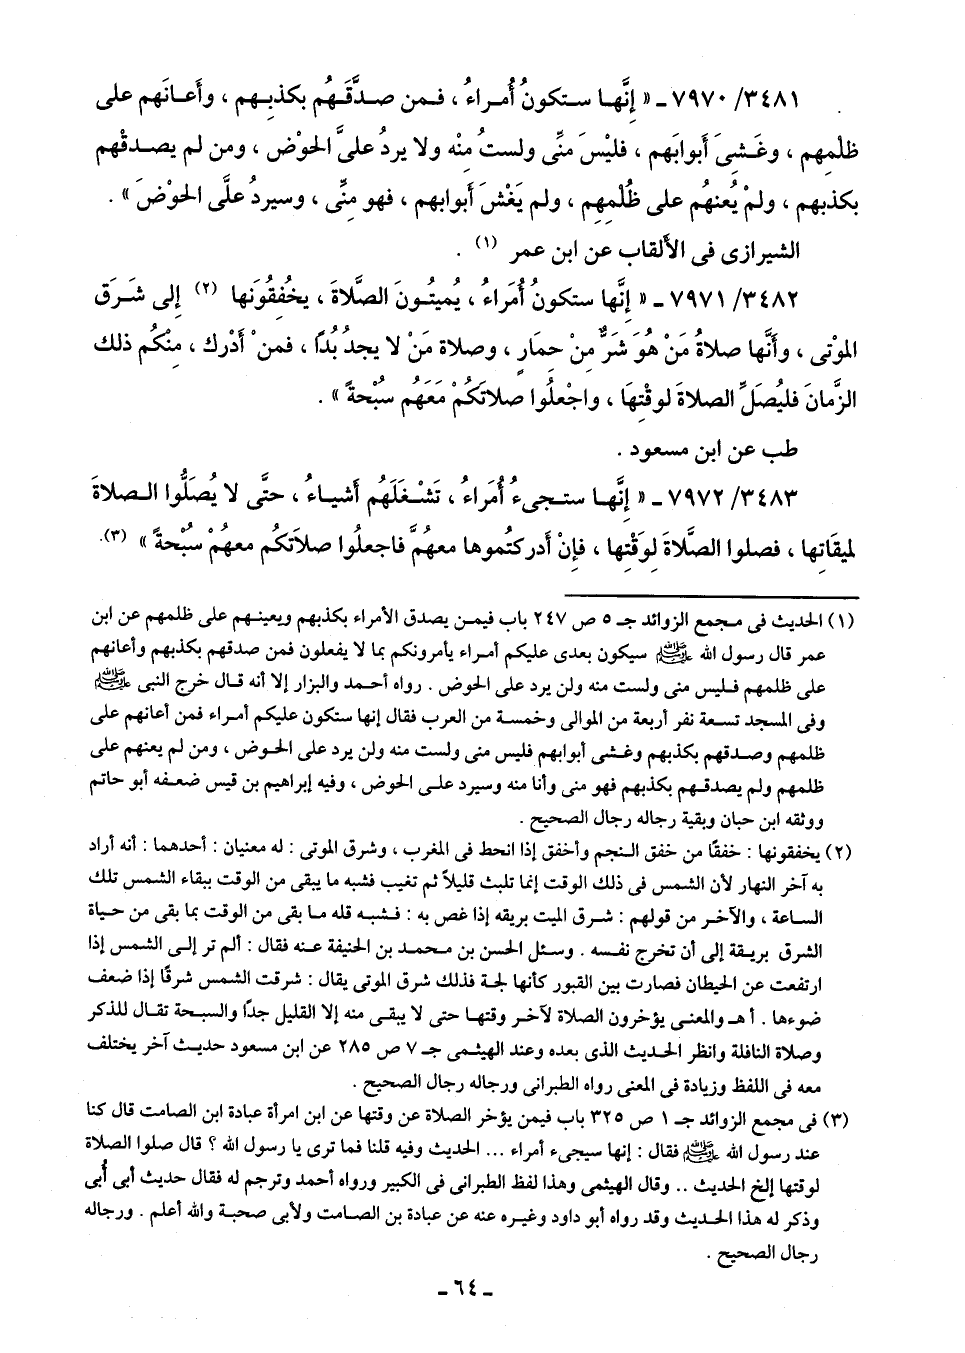 ٧٩٧٠/٣٤٨١ ـ « إِنَّها ستكونُ أُمراءُ ، فمن صدَّقَهُم بكذبِهم ، وأَعانَهم على
ظلْمِهم ، وغَشِىَ أَبوابَهم ، فليْسَ منِّى ولستُ مِنْه ولا يردُ علىَّ الحَوْض ، ومن لم يصدقْهم
بكذبهم ، ولمْ يُعنهُم على ظُلْمِهِم ، ولم يَغْشَ أَبوابهم ، فهو مِنِّى ، وسيردُ علَّى الحَوْضَ » .
الشيرازى فى الأَلقاب عن ابن عمر (١) .
٧٩٧١/٣٤٨٢ ـ « إِنَّها ستكونُ أُمَراءُ ، يُميتُونَ الصَّلاةَ ، يخْفُقُونَها (٢) إلى شَرَق
الموْتى ، وأَنَّها صلاةُ مَنْ هُوَ شَرٌّ مِنْ حمارٍ ، وصلاة مَنْ لا يجدُ بُدًا ، فمنْ أَدْرك ، منْكُم ذلك
الزَّمانَ فليُصَلِّ الصلاةَ لوقْتِهَا ، واجْعلُوا صلاتَكُمْ مَعَهُم سُبْحةً » .
طب عن ابن مسعود .
٧٩٧٢/٣٤٨٣ ـ « إِنَّها ستجىءُ أُمَراءُ ، تَشْغَلَهُم أَشياءُ ، حتَّى لا يُصَلُّوا الصلاةَ
لميقَاتِها ، فصلوا الصَّلاةَ لِوَقْتِها ، فإِنْ أَدركتُموها معهُمَّ فاجعلُوا صلاَتكُم معهُمْ سُبْحةً » (٣).
(١) الحديث فى مجمع الزوائد جـ ٥ ص ٢٤٧ باب فيمن يصدق الأمراء بكذبهم ويعينهم على ظلمهم عن ابن
عمر قال رسول الله ﷺ سيكون بعدى عليكم أمراء يأمرونكم بما لا يفعلون فمن صدقهم بكذبهم وأعانهم
على ظلمهم فليس منى ولست منه ولن يرد على الحوض . رواه أحمد والبزار إلا أنه قال خرج النبى ﷺ
وفى المسجد تسعة نفر أربعة من الموالى وخمسة من العرب فقال إنها ستكون عليكم أمراء فمن أعانهم على
ظلمهم وصدقهم بكذبهم وغشى أبوابهم فليس منى ولست منه ولن يرد على الحوض ، ومن لم يعنهم على
ظلمهم ولم يصدقهم بكذبهم فهو منى وأنا منه وسيرد على الحوض ، وفيه إبراهيم بن قيس ضعفه أبو حاتم
ووثقه ابن حبان وبقية رجاله رجال الصحيح .
(٢) يخفقونها : خفقًا من خفق النجم وأخفق إذا انحط فى المغرب ، وشرق الموتى : له معنيان : أحدهما : أنه أراد
به آخر النهار لأن الشمس فى ذلك الوقت إنما تلبث قليلاً ثم تغيب فشبه ما يبقى من الوقت ببقاء الشمس تلك
الساعة ، والآخر من قولهم : شرق الميت بريقه إذا غص به : فشبه قله ما بقى من الوقت بما بقى من حياة
الشرق بريقة إلى أن تخرج نفسه . وسئل الحسن بن محمد بن الحنيفة عنه فقال : ألم تر إلى الشمس إذا
ارتفعت عن الحيطان فصارت بين القبور كأنها لجة فذلك شرق الموتى يقال : شرقت الشمس شرقًا إذا ضعف
ضوءها . أهـ والمعنى يؤخرون الصلاة لآخر وقتها حتى لا يبقى منه إلا القليل جدًا والسبحة تقال للذكر
وصلاة النافلة وانظر الحديث الذى بعده وعند الهيثمى جـ ٧ ص ٢٨٥ عن ابن مسعود حديث آخر يختلف
معه فى اللفظ وزيادة فى المعنى رواه الطبرانى ورجاله رجال الصحيح .
(٣) فى مجمع الزوائد جـ ١ ص ٣٢٥ باب فيمن يؤخر الصلاة عن وقتها عن ابن امرأة عبادة ابن الصامت قال كنا
عند رسول الله ﷺ فقال : إنها سيجىء أمراء ... الحديث وفيه قلنا فما ترى يا رسول الله ؟ قال صلوا الصلاة
لوقتها إلخ الحديث .. وقال الهيثمى وهذا لفظ الطبرانى فى الكبير ورواه أحمد وترجم له فقال حديث أبى أُبى
وذكر له هذا الحديث وقد رواه أبو داود وغيره عنه عن عبادة بن الصامت ولأبى صحبة والله أعلم . ورجاله
رجال الصحيح .
ـ ٦٤ ـ